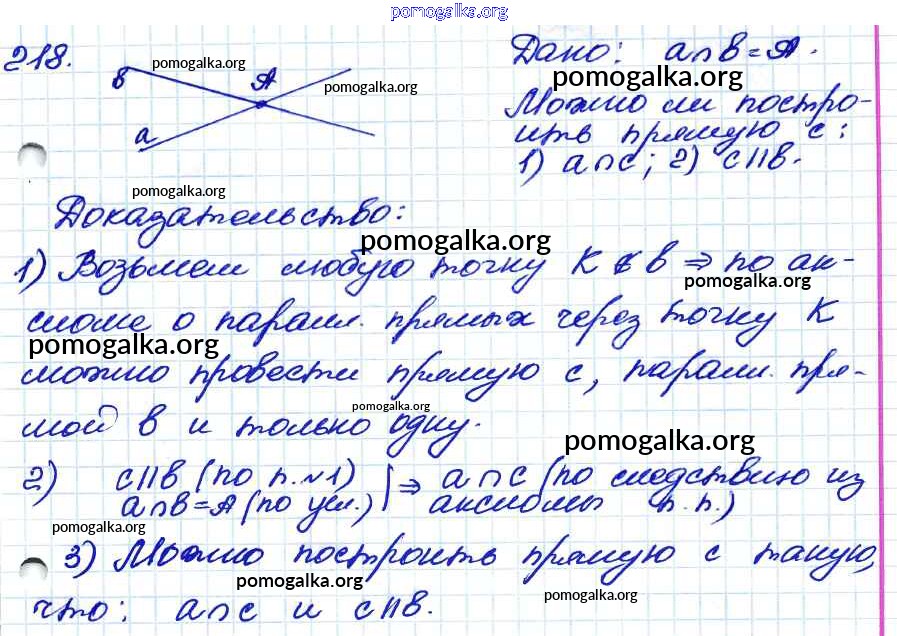 pomogalka.org
218.
в
а
А
pomogalka.org
pomogalka.org
Дано: a∩в=А.
pomogalka.org
Можно ли постро-
ить прямую с:
1) a∩c; 2) c||в.
pomogalka.org
Доказательство:
pomogalka.org
1) Возьмем любую точку К ∉ в ⇒ по ак-
pomogalka.org
сиоме о паралл. прямых через точку К
pomogalka.org
можно провести прямую с, паралл. пря-
pomogalka.org
мой в и только одну.
pomogalka.org
2) c||в (по п.№1) | ⇒ a∩c (по следствию из
a∩в=А (по усл.) | аксиомы п.п.)
pomogalka.org
3) Можно построить прямую с такую,
pomogalka.org
что: a∩c и c||в.
pomogalka.org